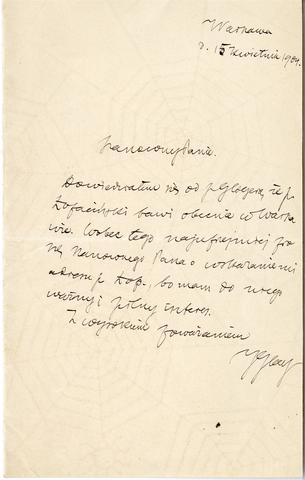 Warszawa
d. 15 kwietnia 1904.
Szanowny Panie.
Dowiedziałem się od p. Glogera, że p.
Łopaciński bawi obecnie w Warsza
wie. Wobec tego najuprzejmiej pro
szę Szanownego Pana o wskazanie mi
adresu p. Łop., bo mam do niego
ważny i pilny interes.
Z wysokiem poważaniem